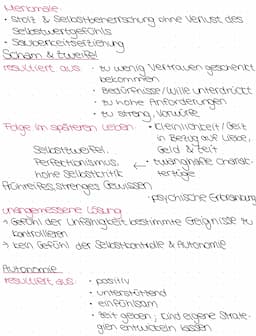 Merkmale:
• Stolz & Selbstbeherrschung ohne Verlust des
Selbstwertgefühls
• Sauberkeitserziehung
Scham & Zweifel
resultiert aus: • zu wenig Vertrauen geschenkt
bekommen
• Bedürfnisse/Wille unterdrückt
• zu hohe Anforderungen
• zu streng, Vorwürfe
Folge im späteren Leben: • Kleinlichkeit/Geiz
in Bezug auf Liebe,
Geld & Zeit
Selbstzweifel,
Perfektionismus, ← • zwanghafte Charakt-
hohe Selbstkritik
terzüge
frühreifes, strenges Gewissen
• psychische Erkrankung
unangemessene Lösung
→ Gefühl der Unfähigkeit bestimmte Ereignisse zu
kontrollieren
→ kein Gefühl der Selbstkontrolle & Autonomie
Autonomie
resultiert aus: • positiv
• unterstützend
• einfühlsam
• Zeit geben, Kind eigene Strate-
gien entwickeln lassen